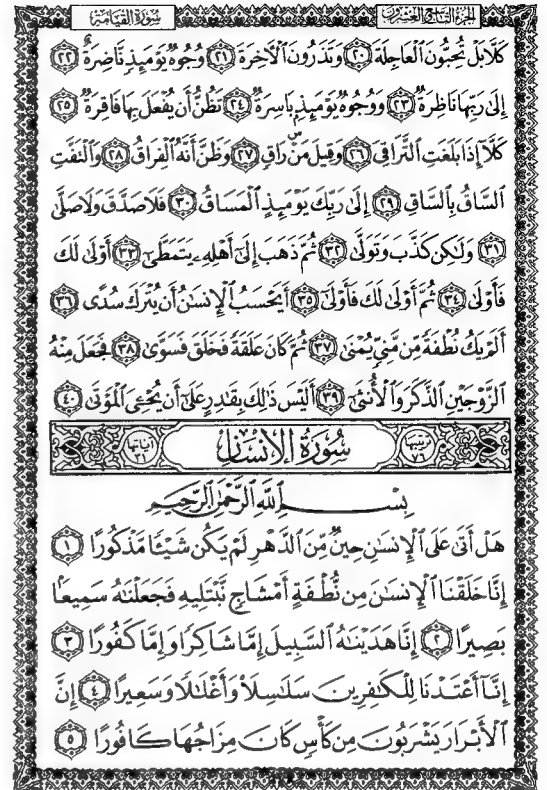 سُورَةُ القِيَامَةِ الجزء التاسع والعشرون
كَلَّا بَلْ تُحِبُّونَ ٱلْعَاجِلَةَ ٢٠ وَتَذَرُونَ ٱلْأَخِرَةَ ٢١ وُجُوهٌ يَوْمَئِذٍ نَّاضِرَةٌ ٢٢
إِلَىٰ رَبِّهَا نَاظِرَةٌ ٢٣ وَوُجُوهٌ يَوْمَئِذٍ بَاسِرَةٌ ٢٤ تَظُنُّ أَن يُفْعَلَ بِهَا فَاقِرَةٌ ٢٥
كَلَّا إِذَا بَلَغَتِ ٱلتَّرَاقِيَ ٢٦ وَقِيلَ مَنْ ۜ رَاقٍ ٢٧ وَظَنَّ أَنَّهُ ٱلْفِرَاقُ ٢٨ وَٱلْتَفَّتِ
ٱلسَّاقُ بِٱلسَّاقِ ٢٩ إِلَىٰ رَبِّكَ يَوْمَئِذٍ ٱلْمَسَاقُ ٣٠ فَلَا صَدَّقَ وَلَا صَلَّىٰ
٣١ وَلَٰكِن كَذَّبَ وَتَوَلَّىٰ ٣٢ ثُمَّ ذَهَبَ إِلَىٰٓ أَهْلِهِۦ يَتَمَطَّىٰٓ ٣٣ أَوْلَىٰ لَكَ
فَأَوْلَىٰ ٣٤ ثُمَّ أَوْلَىٰ لَكَ فَأَوْلَىٰٓ ٣٥ أَيَحْسَبُ ٱلْإِنسَٰنُ أَن يُتْرَكَ سُدًى ٣٦
أَلَمْ يَكُ نُطْفَةً مِّن مَّنِيٍّ يُمْنَىٰ ٣٧ ثُمَّ كَانَ عَلَقَةً فَخَلَقَ فَسَوَّىٰ ٣٨ فَجَعَلَ مِنْهُ
ٱلزَّوْجَيْنِ ٱلذَّكَرَ وَٱلْأُنثَىٰٓ ٣٩ أَلَيْسَ ذَٰلِكَ بِقَٰدِرٍ عَلَىٰٓ أَن يُحْـِۧىَ ٱلْمَوْتَىٰ ٤٠
ترتيبها ٧٦ سُورَةُ الإِنسَانِ آياتها ٣١
بِسْمِ ٱللَّهِ ٱلرَّحْمَٰنِ ٱلرَّحِيمِ
هَلْ أَتَىٰ عَلَى ٱلْإِنسَٰنِ حِينٌ مِّنَ ٱلدَّهْرِ لَمْ يَكُن شَيْـًٔا مَّذْكُورًا ١
إِنَّا خَلَقْنَا ٱلْإِنسَٰنَ مِن نُّطْفَةٍ أَمْشَاجٍ نَّبْتَلِيهِ فَجَعَلْنَٰهُ سَمِيعًۢا
بَصِيرًا ٢ إِنَّا هَدَيْنَٰهُ ٱلسَّبِيلَ إِمَّا شَاكِرًا وَإِمَّا كَفُورًا ٣
إِنَّآ أَعْتَدْنَا لِلْكَٰفِرِينَ سَلَٰسِلَا۟ وَأَغْلَٰلًا وَسَعِيرًا ٤ إِنَّ
ٱلْأَبْرَارَ يَشْرَبُونَ مِن كَأْسٍ كَانَ مِزَاجُهَا كَافُورًا ٥